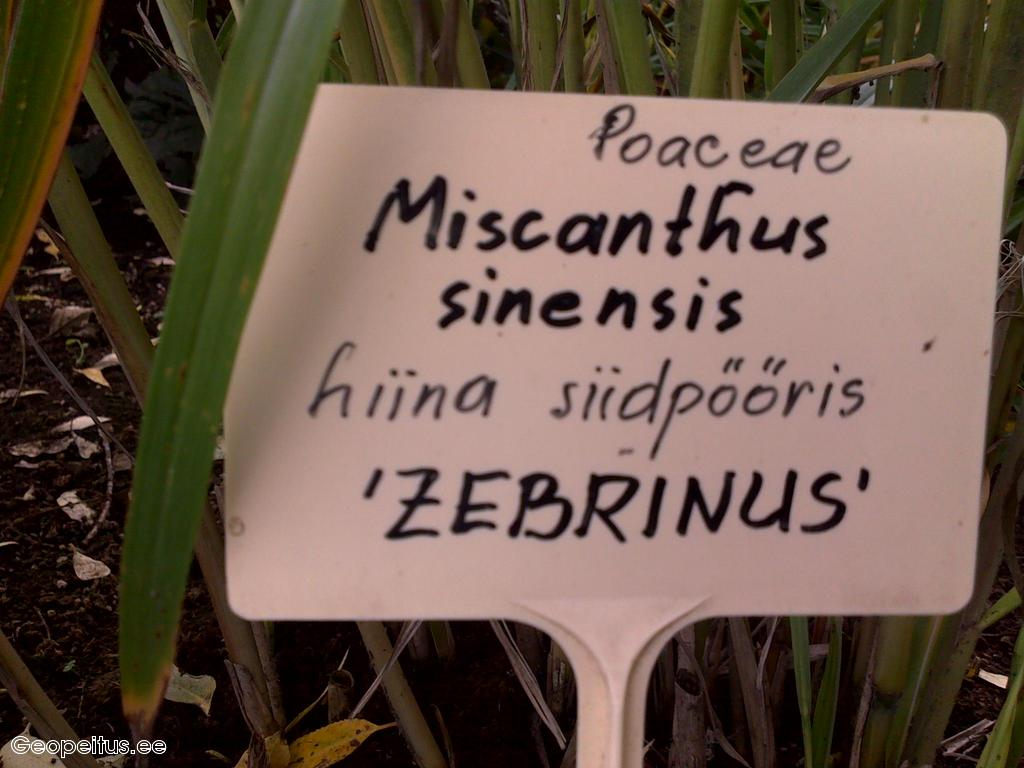 Poaceae
Miscanthus
sinensis
hiina siidpööris
'ZEBRINUS'
Geopeitus.ee